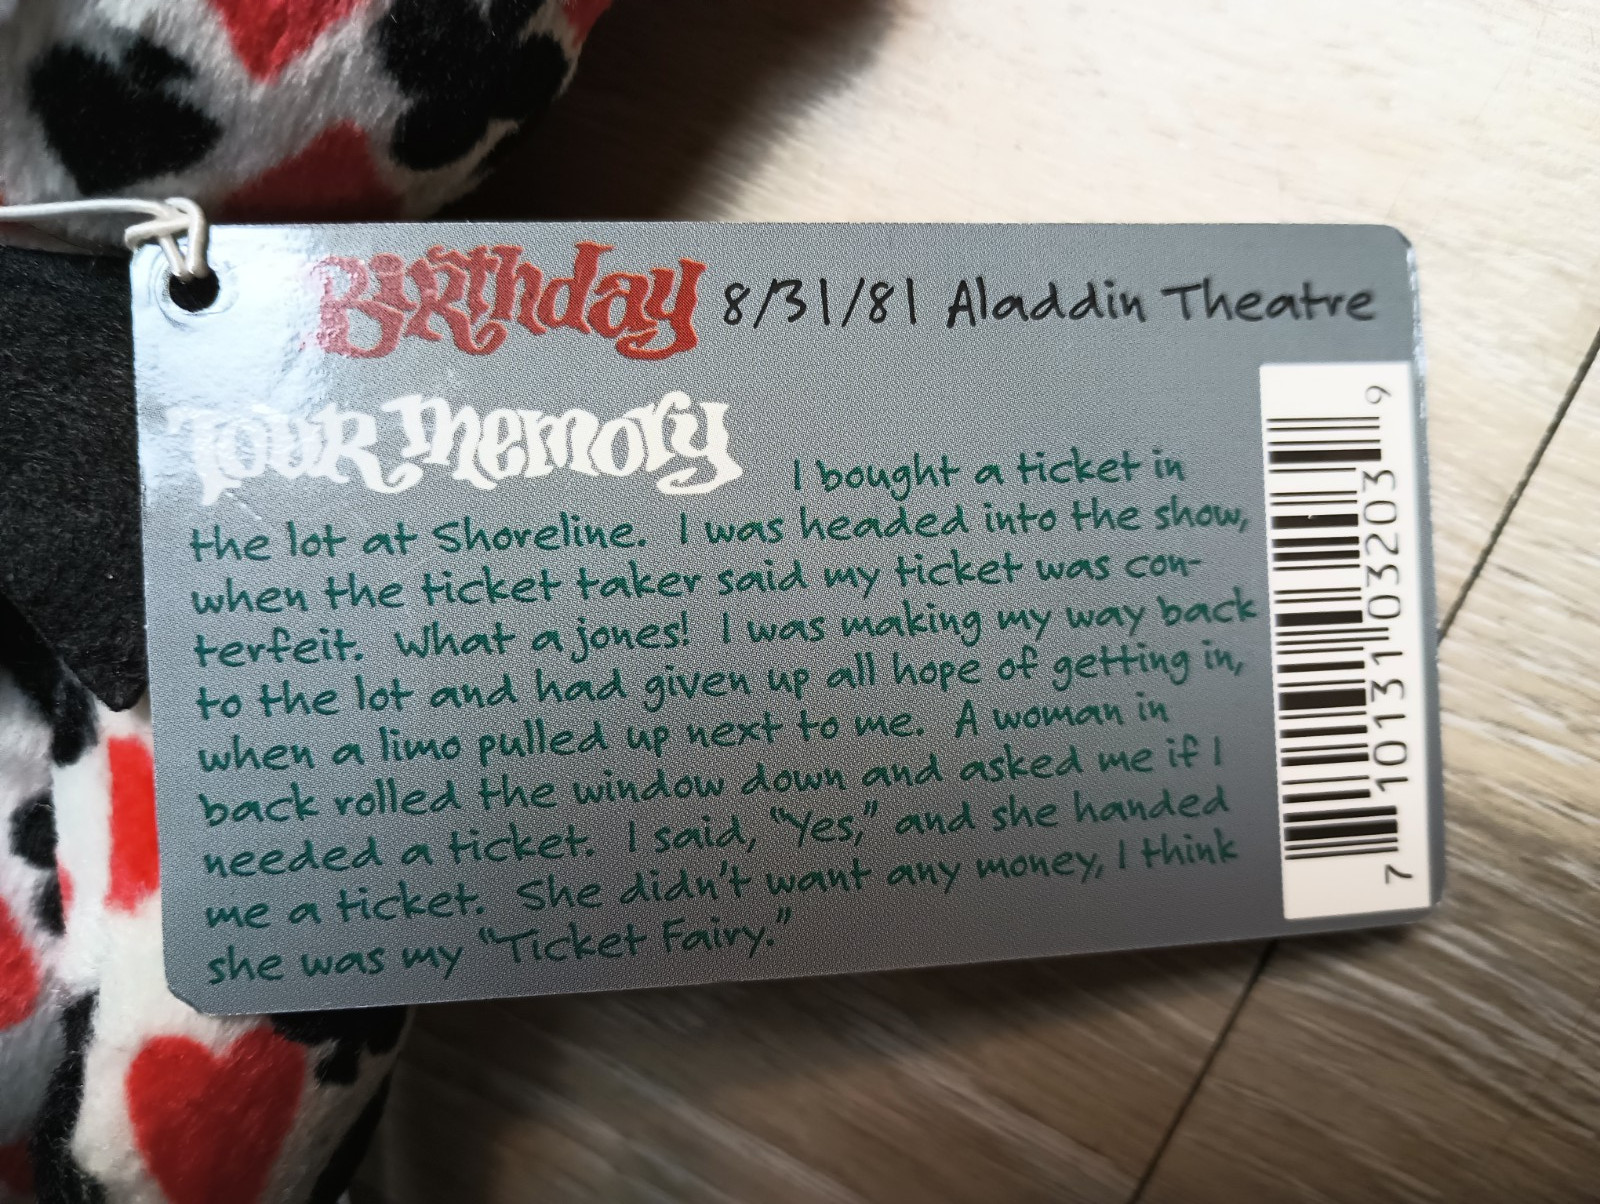 Birthday 8/31/81 Aladdin Theatre
Tour Memory I bought a ticket in
the lot at Shoreline. I was headed into the show,
when the ticket taker said my ticket was con-
terfeit. What a jones! I was making my way back
to the lot and had given up all hope of getting in,
when a limo pulled up next to me. A woman in
back rolled the window down and asked me if I
needed a ticket. I said, "Yes," and she handed
me a ticket. She didn't want any money, I think
she was my "Ticket Fairy."
7 10131 03203 9